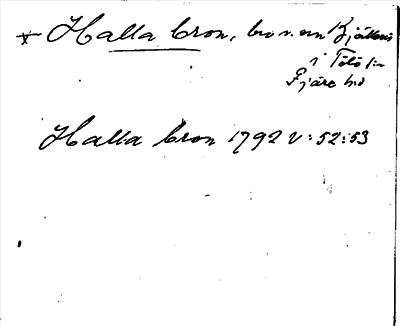 * Halla bron, bro v. om Kjällens
i Tölö sn
Fjäre hd
Halla bron 1792 v: 52: 53